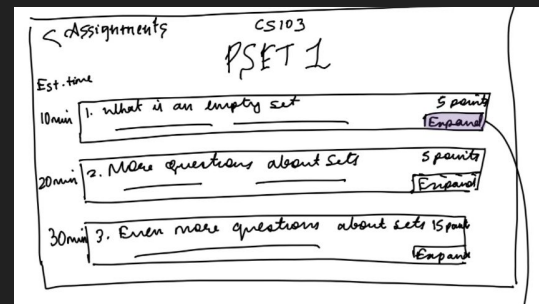 < Assignments
CS103
PSET 1
Est. time
10min
1. What is an empty set
5 points
Expand
20min
2. More questions about sets
5 points
Expand
30min
3. Even more questions about sets
15 point
Expand